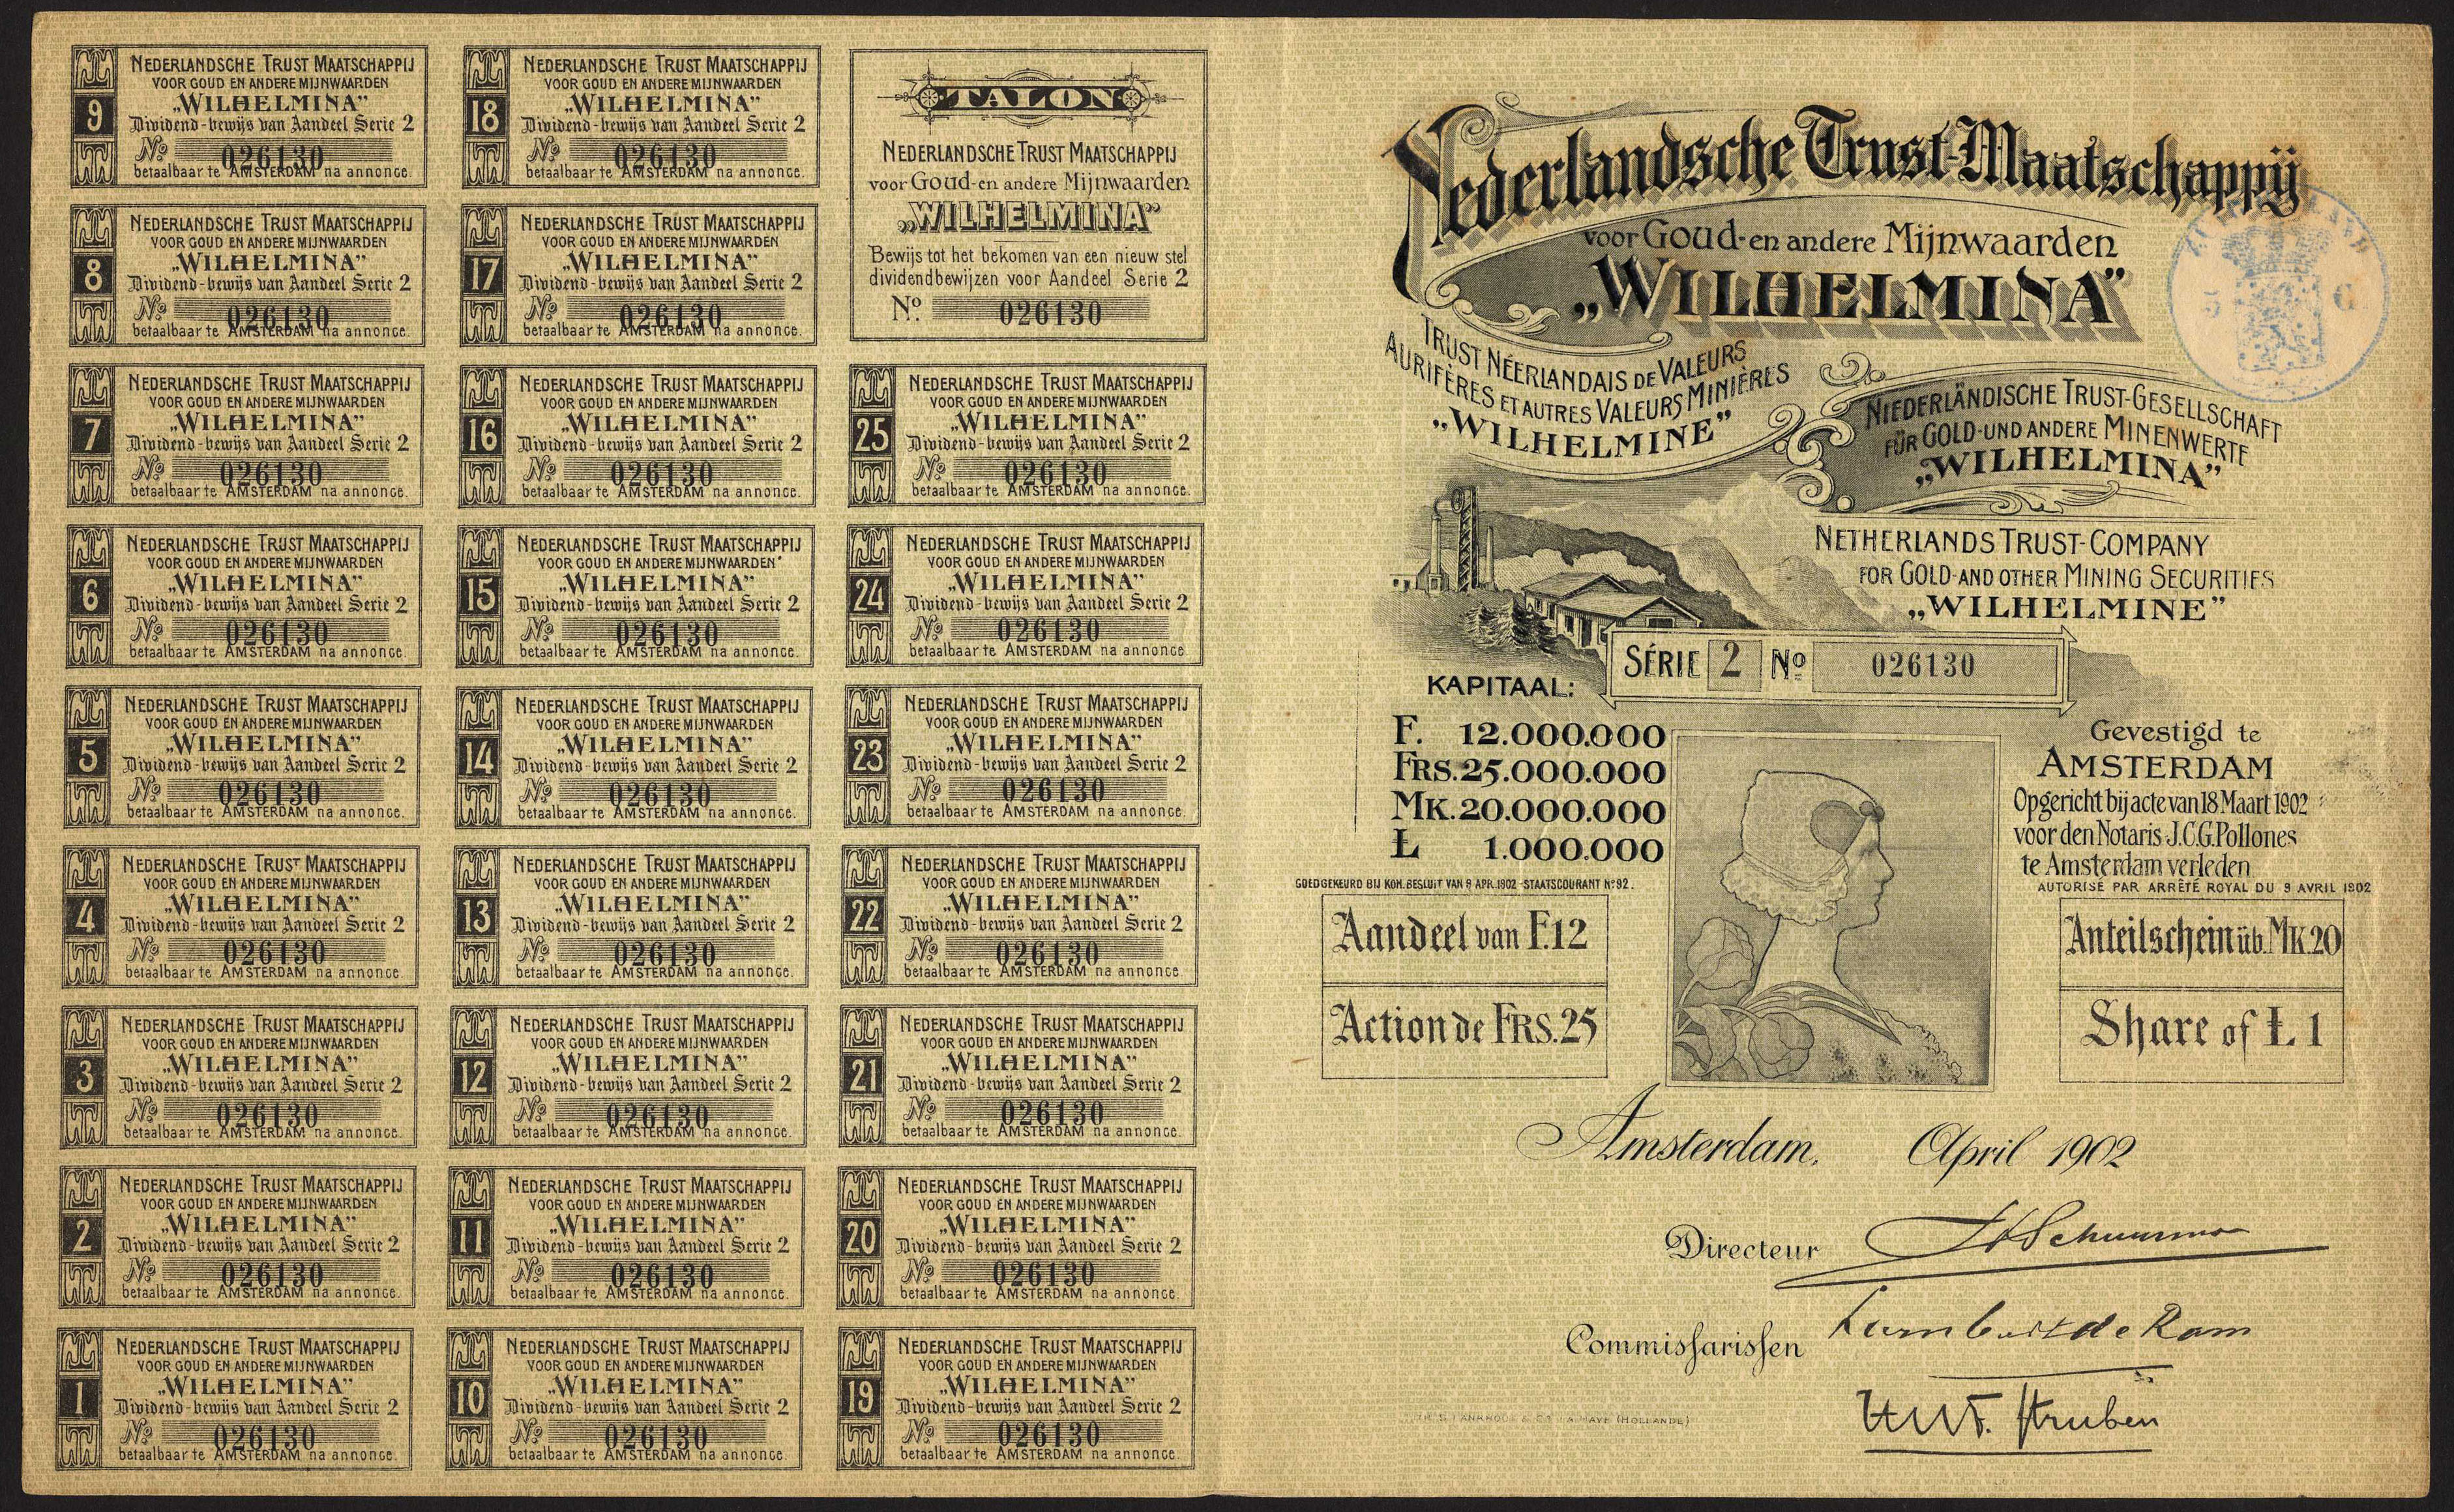 9
NEDERLANDSCHE TRUST MAATSCHAPPIJ
VOOR GOUD EN ANDERE MIJNWAARDEN
„WILHELMINA”
Dividend-bewijs van Aandeel Serie 2
Nº 026130
betaalbaar te AMSTERDAM na annonce.
8
NEDERLANDSCHE TRUST MAATSCHAPPIJ
VOOR GOUD EN ANDERE MIJNWAARDEN
„WILHELMINA”
Dividend-bewijs van Aandeel Serie 2
Nº 026130
betaalbaar te AMSTERDAM na annonce.
7
NEDERLANDSCHE TRUST MAATSCHAPPIJ
VOOR GOUD EN ANDERE MIJNWAARDEN
„WILHELMINA”
Dividend-bewijs van Aandeel Serie 2
Nº 026130
betaalbaar te AMSTERDAM na annonce.
6
NEDERLANDSCHE TRUST MAATSCHAPPIJ
VOOR GOUD EN ANDERE MIJNWAARDEN
„WILHELMINA”
Dividend-bewijs van Aandeel Serie 2
Nº 026130
betaalbaar te AMSTERDAM na annonce.
5
NEDERLANDSCHE TRUST MAATSCHAPPIJ
VOOR GOUD EN ANDERE MIJNWAARDEN
„WILHELMINA”
Dividend-bewijs van Aandeel Serie 2
Nº 026130
betaalbaar te AMSTERDAM na annonce.
4
NEDERLANDSCHE TRUST MAATSCHAPPIJ
VOOR GOUD EN ANDERE MIJNWAARDEN
„WILHELMINA”
Dividend-bewijs van Aandeel Serie 2
Nº 026130
betaalbaar te AMSTERDAM na annonce.
3
NEDERLANDSCHE TRUST MAATSCHAPPIJ
VOOR GOUD EN ANDERE MIJNWAARDEN
„WILHELMINA”
Dividend-bewijs van Aandeel Serie 2
Nº 026130
betaalbaar te AMSTERDAM na annonce.
2
NEDERLANDSCHE TRUST MAATSCHAPPIJ
VOOR GOUD EN ANDERE MIJNWAARDEN
„WILHELMINA”
Dividend-bewijs van Aandeel Serie 2
Nº 026130
betaalbaar te AMSTERDAM na annonce.
1
NEDERLANDSCHE TRUST MAATSCHAPPIJ
VOOR GOUD EN ANDERE MIJNWAARDEN
„WILHELMINA”
Dividend-bewijs van Aandeel Serie 2
Nº 026130
betaalbaar te AMSTERDAM na annonce.
18
NEDERLANDSCHE TRUST MAATSCHAPPIJ
VOOR GOUD EN ANDERE MIJNWAARDEN
„WILHELMINA”
Dividend-bewijs van Aandeel Serie 2
Nº 026130
betaalbaar te AMSTERDAM na annonce.
17
NEDERLANDSCHE TRUST MAATSCHAPPIJ
VOOR GOUD EN ANDERE MIJNWAARDEN
„WILHELMINA”
Dividend-bewijs van Aandeel Serie 2
Nº 026130
betaalbaar te AMSTERDAM na annonce.
16
NEDERLANDSCHE TRUST MAATSCHAPPIJ
VOOR GOUD EN ANDERE MIJNWAARDEN
„WILHELMINA”
Dividend-bewijs van Aandeel Serie 2
Nº 026130
betaalbaar te AMSTERDAM na annonce.
15
NEDERLANDSCHE TRUST MAATSCHAPPIJ
VOOR GOUD EN ANDERE MIJNWAARDEN
„WILHELMINA”
Dividend-bewijs van Aandeel Serie 2
Nº 026130
betaalbaar te AMSTERDAM na annonce.
14
NEDERLANDSCHE TRUST MAATSCHAPPIJ
VOOR GOUD EN ANDERE MIJNWAARDEN
„WILHELMINA”
Dividend-bewijs van Aandeel Serie 2
Nº 026130
betaalbaar te AMSTERDAM na annonce.
13
NEDERLANDSCHE TRUST MAATSCHAPPIJ
VOOR GOUD EN ANDERE MIJNWAARDEN
„WILHELMINA”
Dividend-bewijs van Aandeel Serie 2
Nº 026130
betaalbaar te AMSTERDAM na annonce.
12
NEDERLANDSCHE TRUST MAATSCHAPPIJ
VOOR GOUD EN ANDERE MIJNWAARDEN
„WILHELMINA”
Dividend-bewijs van Aandeel Serie 2
Nº 026130
betaalbaar te AMSTERDAM na annonce.
11
NEDERLANDSCHE TRUST MAATSCHAPPIJ
VOOR GOUD EN ANDERE MIJNWAARDEN
„WILHELMINA”
Dividend-bewijs van Aandeel Serie 2
Nº 026130
betaalbaar te AMSTERDAM na annonce.
10
NEDERLANDSCHE TRUST MAATSCHAPPIJ
VOOR GOUD EN ANDERE MIJNWAARDEN
„WILHELMINA”
Dividend-bewijs van Aandeel Serie 2
Nº 026130
betaalbaar te AMSTERDAM na annonce.
TALON
NEDERLANDSCHE TRUST MAATSCHAPPIJ
voor Goud-en andere Mijnwaarden
„WILHELMINA”
Bewijs tot het bekomen van een nieuw stel
dividendbewijzen voor Aandeel Serie 2
Nº 026130
25
NEDERLANDSCHE TRUST MAATSCHAPPIJ
VOOR GOUD EN ANDERE MIJNWAARDEN
„WILHELMINA”
Dividend-bewijs van Aandeel Serie 2
Nº 026130
betaalbaar te AMSTERDAM na annonce.
24
NEDERLANDSCHE TRUST MAATSCHAPPIJ
VOOR GOUD EN ANDERE MIJNWAARDEN
„WILHELMINA”
Dividend-bewijs van Aandeel Serie 2
Nº 026130
betaalbaar te AMSTERDAM na annonce.
23
NEDERLANDSCHE TRUST MAATSCHAPPIJ
VOOR GOUD EN ANDERE MIJNWAARDEN
„WILHELMINA”
Dividend-bewijs van Aandeel Serie 2
Nº 026130
betaalbaar te AMSTERDAM na annonce.
22
NEDERLANDSCHE TRUST MAATSCHAPPIJ
VOOR GOUD EN ANDERE MIJNWAARDEN
„WILHELMINA”
Dividend-bewijs van Aandeel Serie 2
Nº 026130
betaalbaar te AMSTERDAM na annonce
21
NEDERLANDSCHE TRUST MAATSCHAPPIJ
VOOR GOUD EN ANDERE MIJNWAARDEN
„WILHELMINA”
Dividend-bewijs van Aandeel Serie 2
Nº 026130
betaalbaar te AMSTERDAM na annonce.
20
NEDERLANDSCHE TRUST MAATSCHAPPIJ
VOOR GOUD EN ANDERE MIJNWAARDEN
„WILHELMINA”
Dividend-bewijs van Aandeel Serie 2
Nº 026130
betaalbaar te AMSTERDAM na annonce.
19
NEDERLANDSCHE TRUST MAATSCHAPPIJ
VOOR GOUD EN ANDERE MIJNWAARDEN
„WILHELMINA”
Dividend-bewijs van Aandeel Serie 2
Nº 026130
betaalbaar te AMSTERDAM na annonce.
Nederlandsche Trust-Maatschappij
voor Goud-en andere Mijnwaarden
„WILHELMINA”
TRUST NÉERLANDAIS DE VALEURS
AURIFÈRES ET AUTRES VALEURS MINIÈRES
„WILHELMINE”
NIEDERLÄNDISCHE TRUST-GESELLSCHAFT
FÜR GOLD-UND ANDERE MINENWERTE
„WILHELMINA”
NETHERLANDS TRUST-COMPANY
FOR GOLD-AND OTHER MINING SECURITIES
„WILHELMINE”
SÉRIE 2 Nº 026130
KAPITAAL:
F. 12.000.000
FRS. 25.000.000
MK. 20.000.000
£ 1.000.000
GOEDGEKEURD BIJ KON. BESLUIT VAN 9 APR. 1902 - STAATSCOURANT Nº 92.
Gevestigd te
AMSTERDAM
Opgericht bij acte van 18 Maart 1902
voor den Notaris J.C.G. Pollones
te Amsterdam verleden
AUTORISÉ PAR ARRÊTÉ ROYAL DU 9 AVRIL 1902
Aandeel van F. 12
Action de FRS. 25
Anteilschein üb. MK. 20
Share of £ 1
Amsterdam, April 1902
Directeur
Commissarissen
Struben
LA HAYE (HOLLANDE)